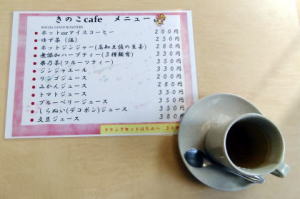 きのこcafe メニュー
ホットorアイスコーヒー 200円
ゆず茶(温) 250円
ホットジンジャー(高知土佐の生姜) 280円
無添加ハーブティー(3種類有) 330円
葉乃茶(フルーツティー) 350円
ジンジャエール 330円
リンゴジュース
みかんジュース 280円
トマトジュース 330円
ブルーベリージュース 350円
しらぬい(デコポン)ジュース 330円
文旦ジュース 380円